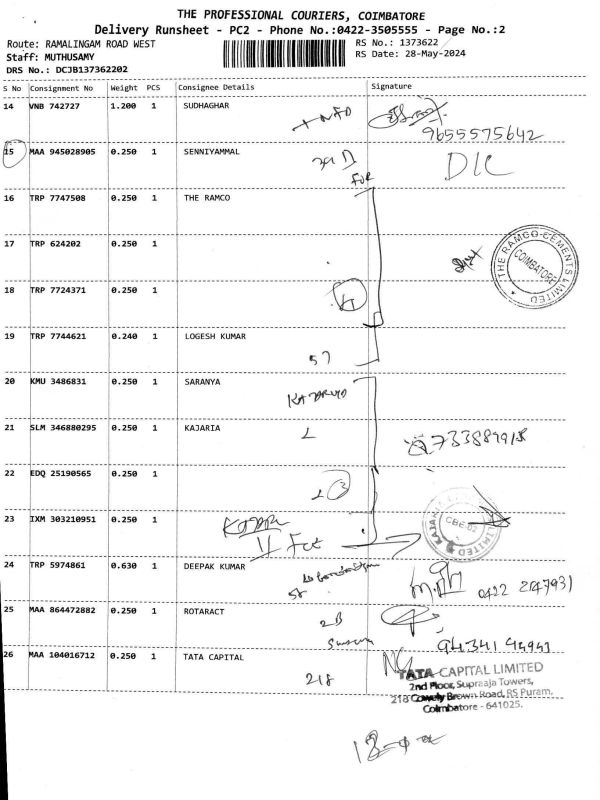 THE PROFESSIONAL COURIERS, COIMBATORE
Delivery Runsheet - PC2 - Phone No.:0422-3505555 - Page No.:2
Route: RAMALINGAM ROAD WEST
RS No.: 1373622
Staff: MUTHUSAMY
RS Date: 28-May-2024
DRS No.: DCJB137362202
S No Consignment No Weight PCS Consignee Details Signature
14 VNB 742727 1.200 1 SUDHAGHAR
9655575642
15 MAA 945028905 0.250 1 SENNIYAMMAL
16 TRP 7747508 0.250 1 THE RAMCO
17 TRP 624202 0.250 1
THE RAMCO CEMENTS LIMITED
COIMBATORE
18 TRP 7724371 0.250 1
19 TRP 7744621 0.240 1 LOGESH KUMAR
57
20 KMU 3486831 0.250 1 SARANYA
21 SLM 346880295 0.250 1 KAJARIA
22 EDQ 25190565 0.250 1
23 IXM 303210951 0.250 1
24 TRP 5974861 0.630 1 DEEPAK KUMAR
25 MAA 864472882 0.250 1 ROTARACT
2B
26 MAA 104016712 0.250 1 TATA CAPITAL
218
TATA CAPITAL LIMITED
2nd Floor, Supraaja Towers,
218 Cowely Brown Road, RS Puram,
Coimbatore - 641025.